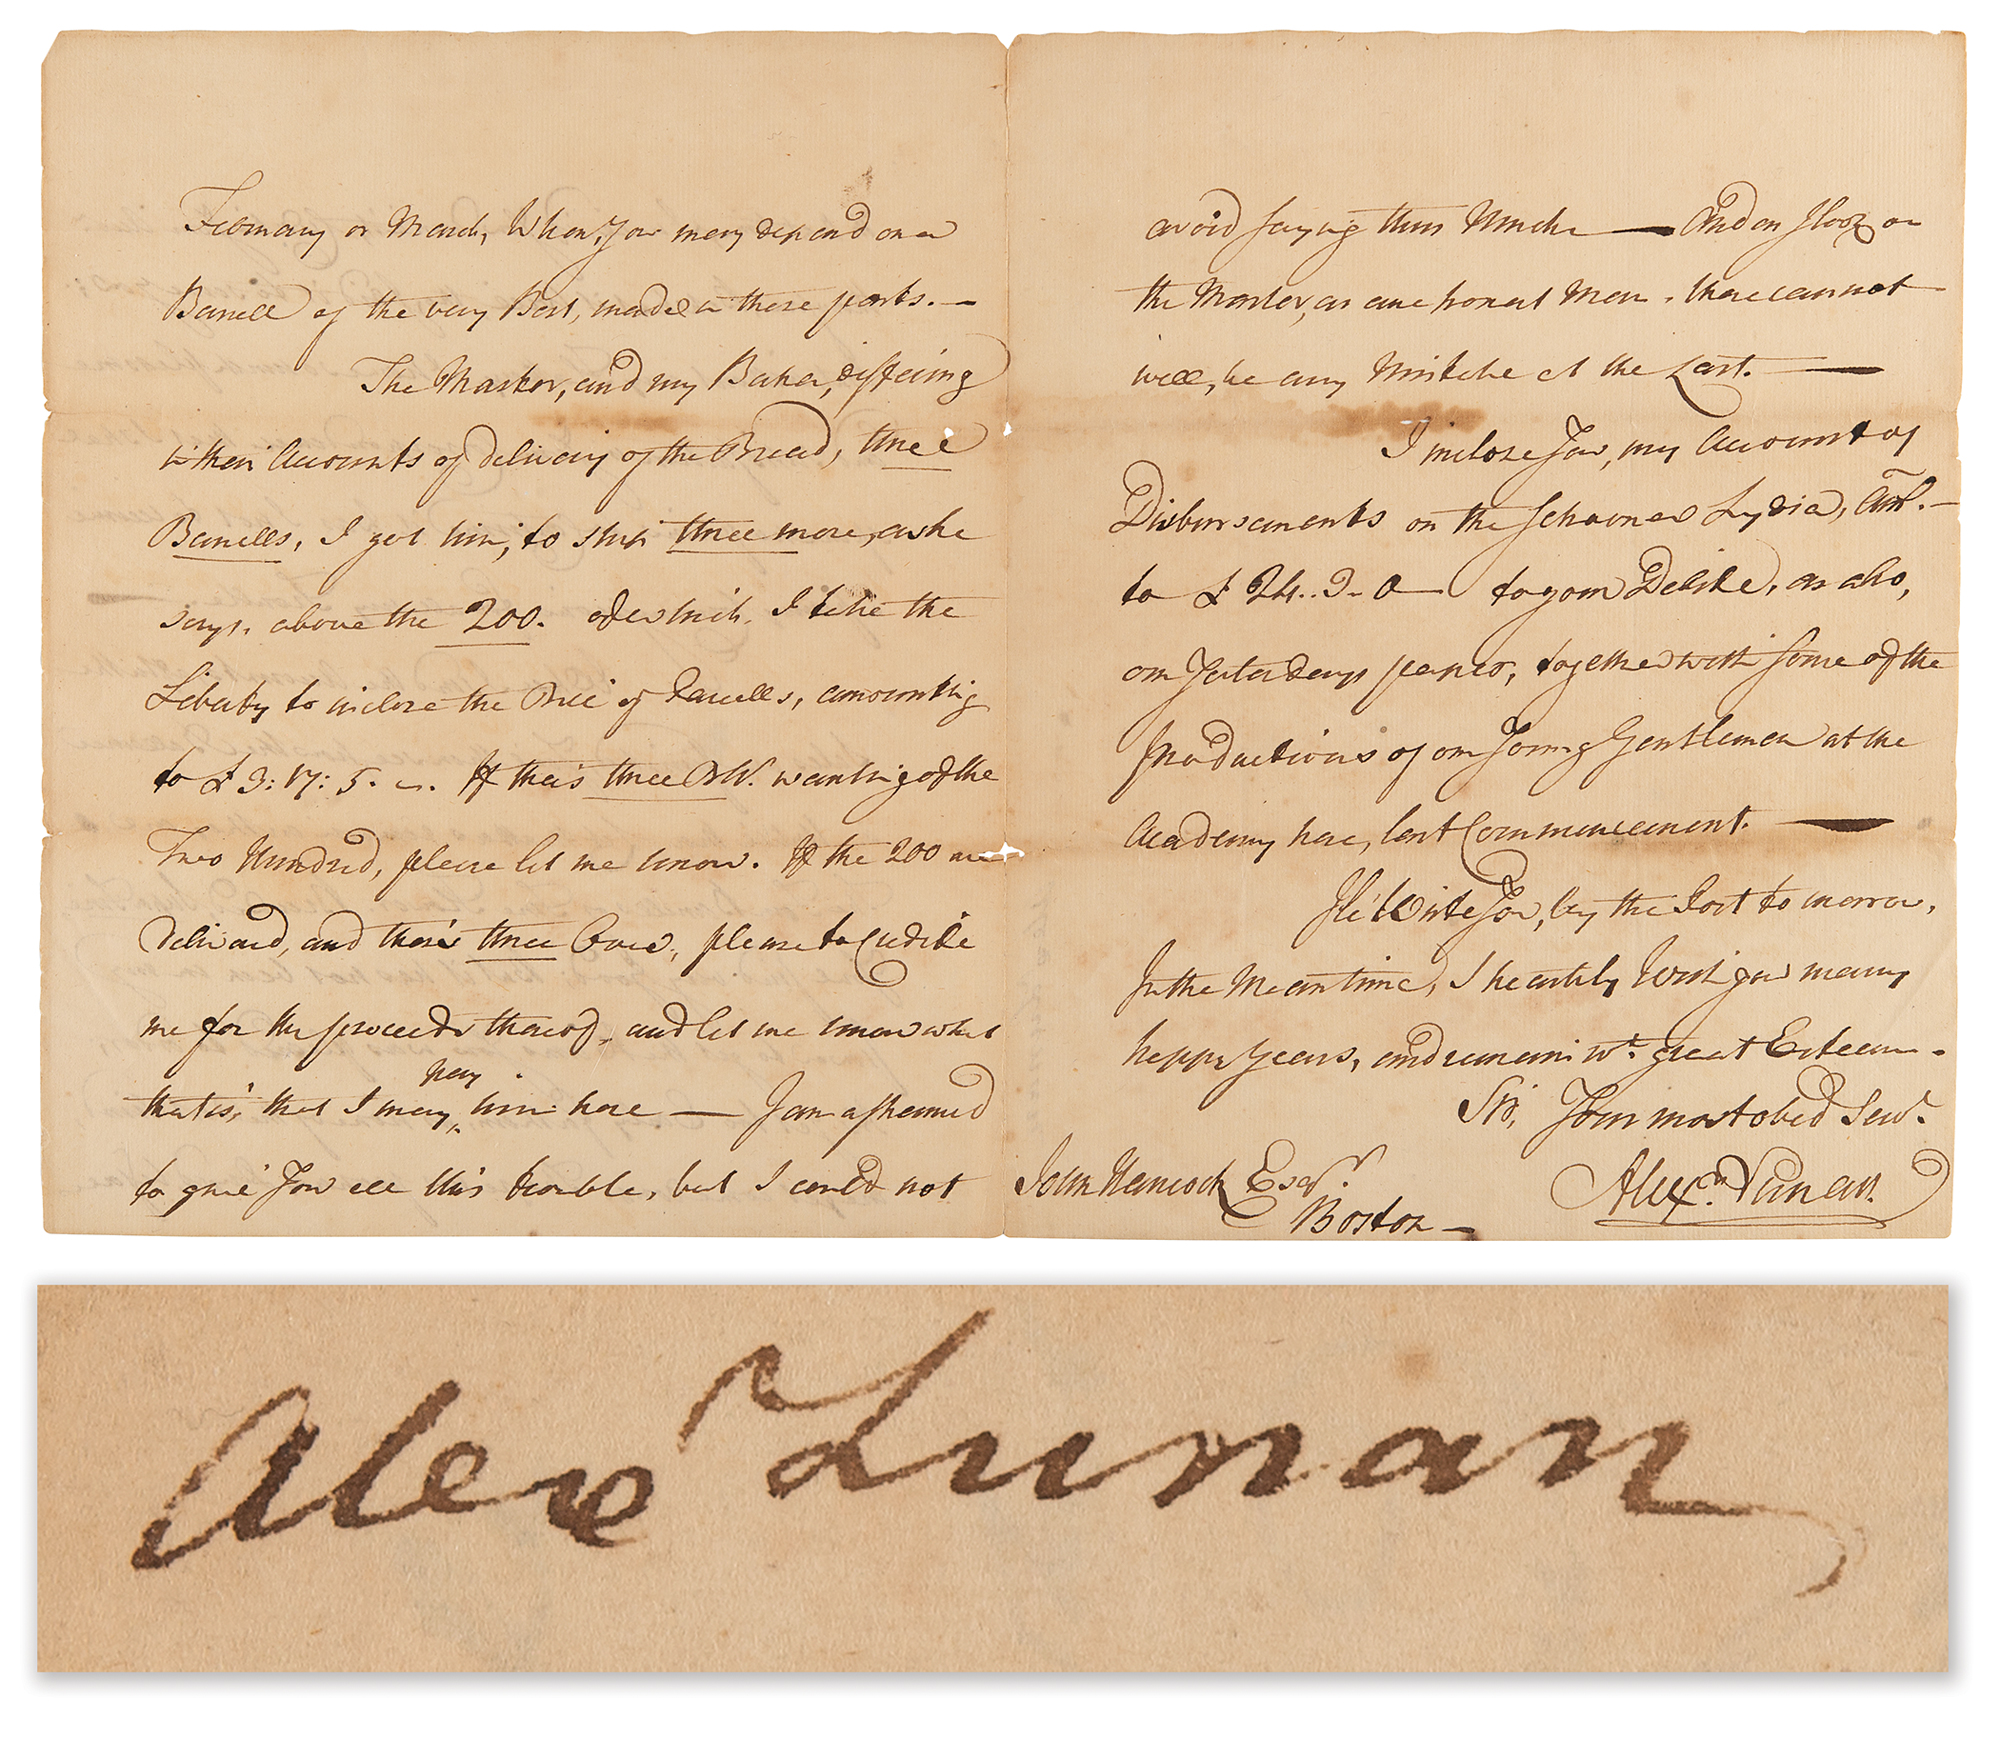 February or March, When, You may depend on a
Barrell of the very Best, made in these parts. —
The Master, and my Baker, differing
in their Accounts of delivery of the Bread, three
Barrells, I got him, to ship three more, as he
says, above the 200. of which, I take the
Liberty to inclose the Price of Parcells, amounting
to £ 3: 17: 5. If theis three wanting of the
Two Hundred, please let me know. If the 200 are
delivered, and theis three Over, please to Credite
me for the proceeds thereof, and let me know what
pay
that is, that I may, him here — I am ashamed
to give You all this trouble, but I could not
avoid saying thus Much — And as I look on
the Master, as ane honest Man, there cannot
well, be any Mistake at the Last. —
I inclose You, my Account of
Disbursements on the Schooner Lydia, Amt. —
to £ 24.. 3 - 0 — to your Debite, as also,
our Yesterdays papers, together with some of the
productions of our Young Gentlemen at the
Academy here, last Commencement. —
I'le Write You, by the Post to morrow,
In the Meantime, I heartily Wish you many
happy Years, and remain wt. great Esteem -
Sir, Your most obed Servt.
John Hancock Esqr.
Boston —
Alexr. Lunan.
Alex Lunan